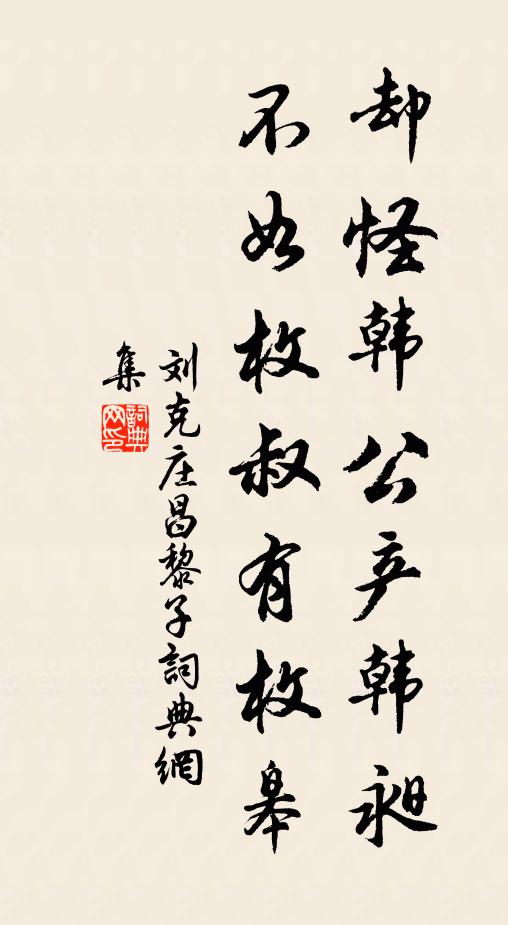 却怪韩公产韩昶
不如枚叔有枚皋
刘克庄昌黎子詞典網
集
詞典网印